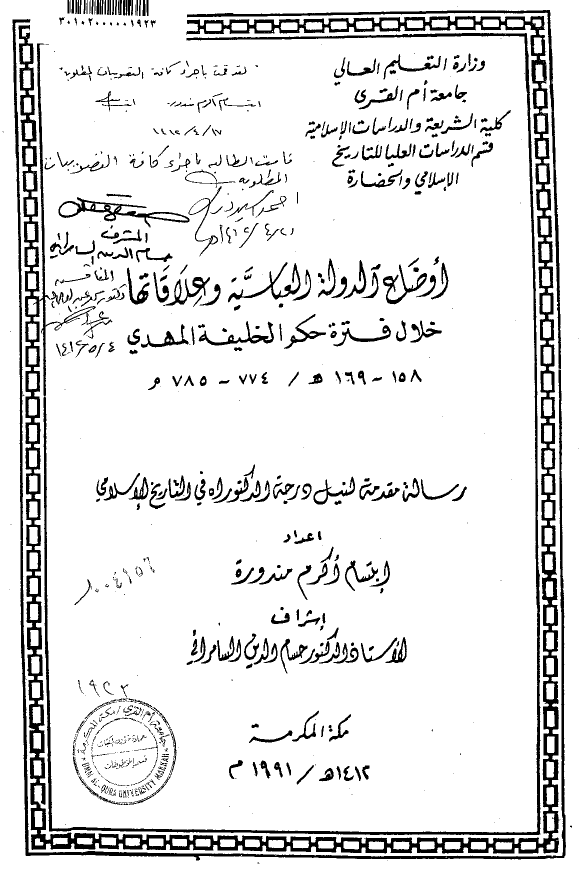 ٣٠١٠٢٠٠٠٠٠١٩٢٣
وزارة التعليم العالي
جامعة أم القرى
كلية الشريعة والدراسات الإسلامية
قسم الدراسات العليا للتاريخ
الإسلامي والحضارة
لقد قمت باجراء كافة التصويبات المطلوبة
١٤١٢/٤/١٧
قامت الطالبه باجراء كافة التصويبات
المطلوبه
المشرف
حسام الدين السامرائي
المناقش
أوضاع الدولة العباسية وعلاقاتها
خلال فترة حكم الخليفة المهدي
١٥٨ - ١٦٩ هـ / ٧٧٤ - ٧٨٥ م
رسالة مقدمة لنيل درجة الدكتوراه في التاريخ الإسلامي
اعداد
إبتسام أكرم مندورة
إشراف
الأستاذ الدكتور حسام الدين السامرائي
١٩٢٣
مكة المكرمة
١٤١٢هـ / ١٩٩١ م
جامعة أم القرى / مكة المكرمة
UMM AL-QURA UNIVERSITY MAKKAH